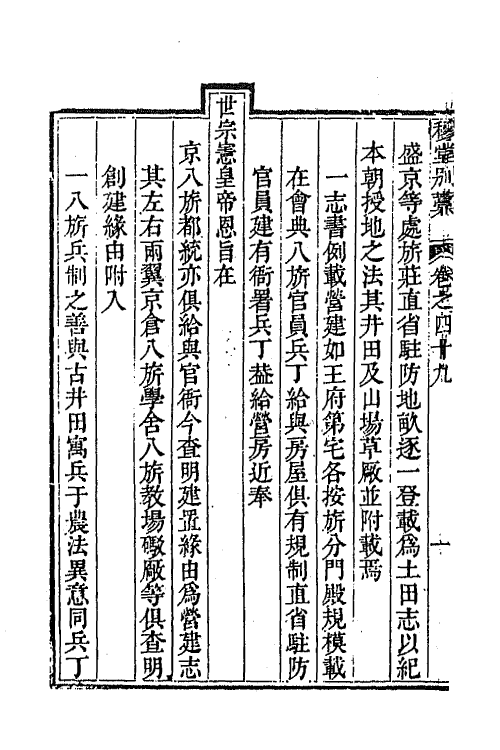 穆堂別藁 卷之四十九 一
盛京等處旂莊直省駐防地畝逐一登載爲土田志以紀
本朝授地之法其井田及山場草厰並附載焉
一志書例載營建如王府第宅各按旂分門殿規模載
在會典八旂官員兵丁給與房屋俱有規制直省駐防
官員建有衙署兵丁葢給營房近奉
世宗憲皇帝恩旨在
京八旂都統亦俱給與官衙今查明建置緣由爲營建志
其左右兩翼京倉八旂學舍八旂教場礮厰等俱查明
創建緣由附入
一八旂兵制之善與古井田寓兵于農法異意同兵丁